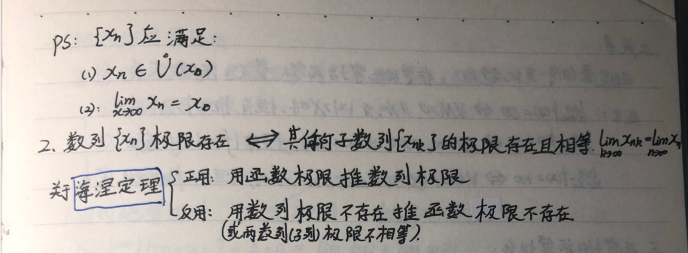 PS: {xₙ}应满足:
(1) xₙ ∈ Ů(x₀)
(2): lim_{x→∞} xₙ = x₀
2、数列{xₙ}极限存在 ⟺ 其任何子数列{xₙₖ}的极限存在且相等. lim_{k→∞} xₙₖ = lim_{n→∞} xₙ
关于海涅定理 { 正用: 用函数极限推数列极限
反用: 用数列极限不存在推函数极限不存在
(或两数列(子列)极限不相等).